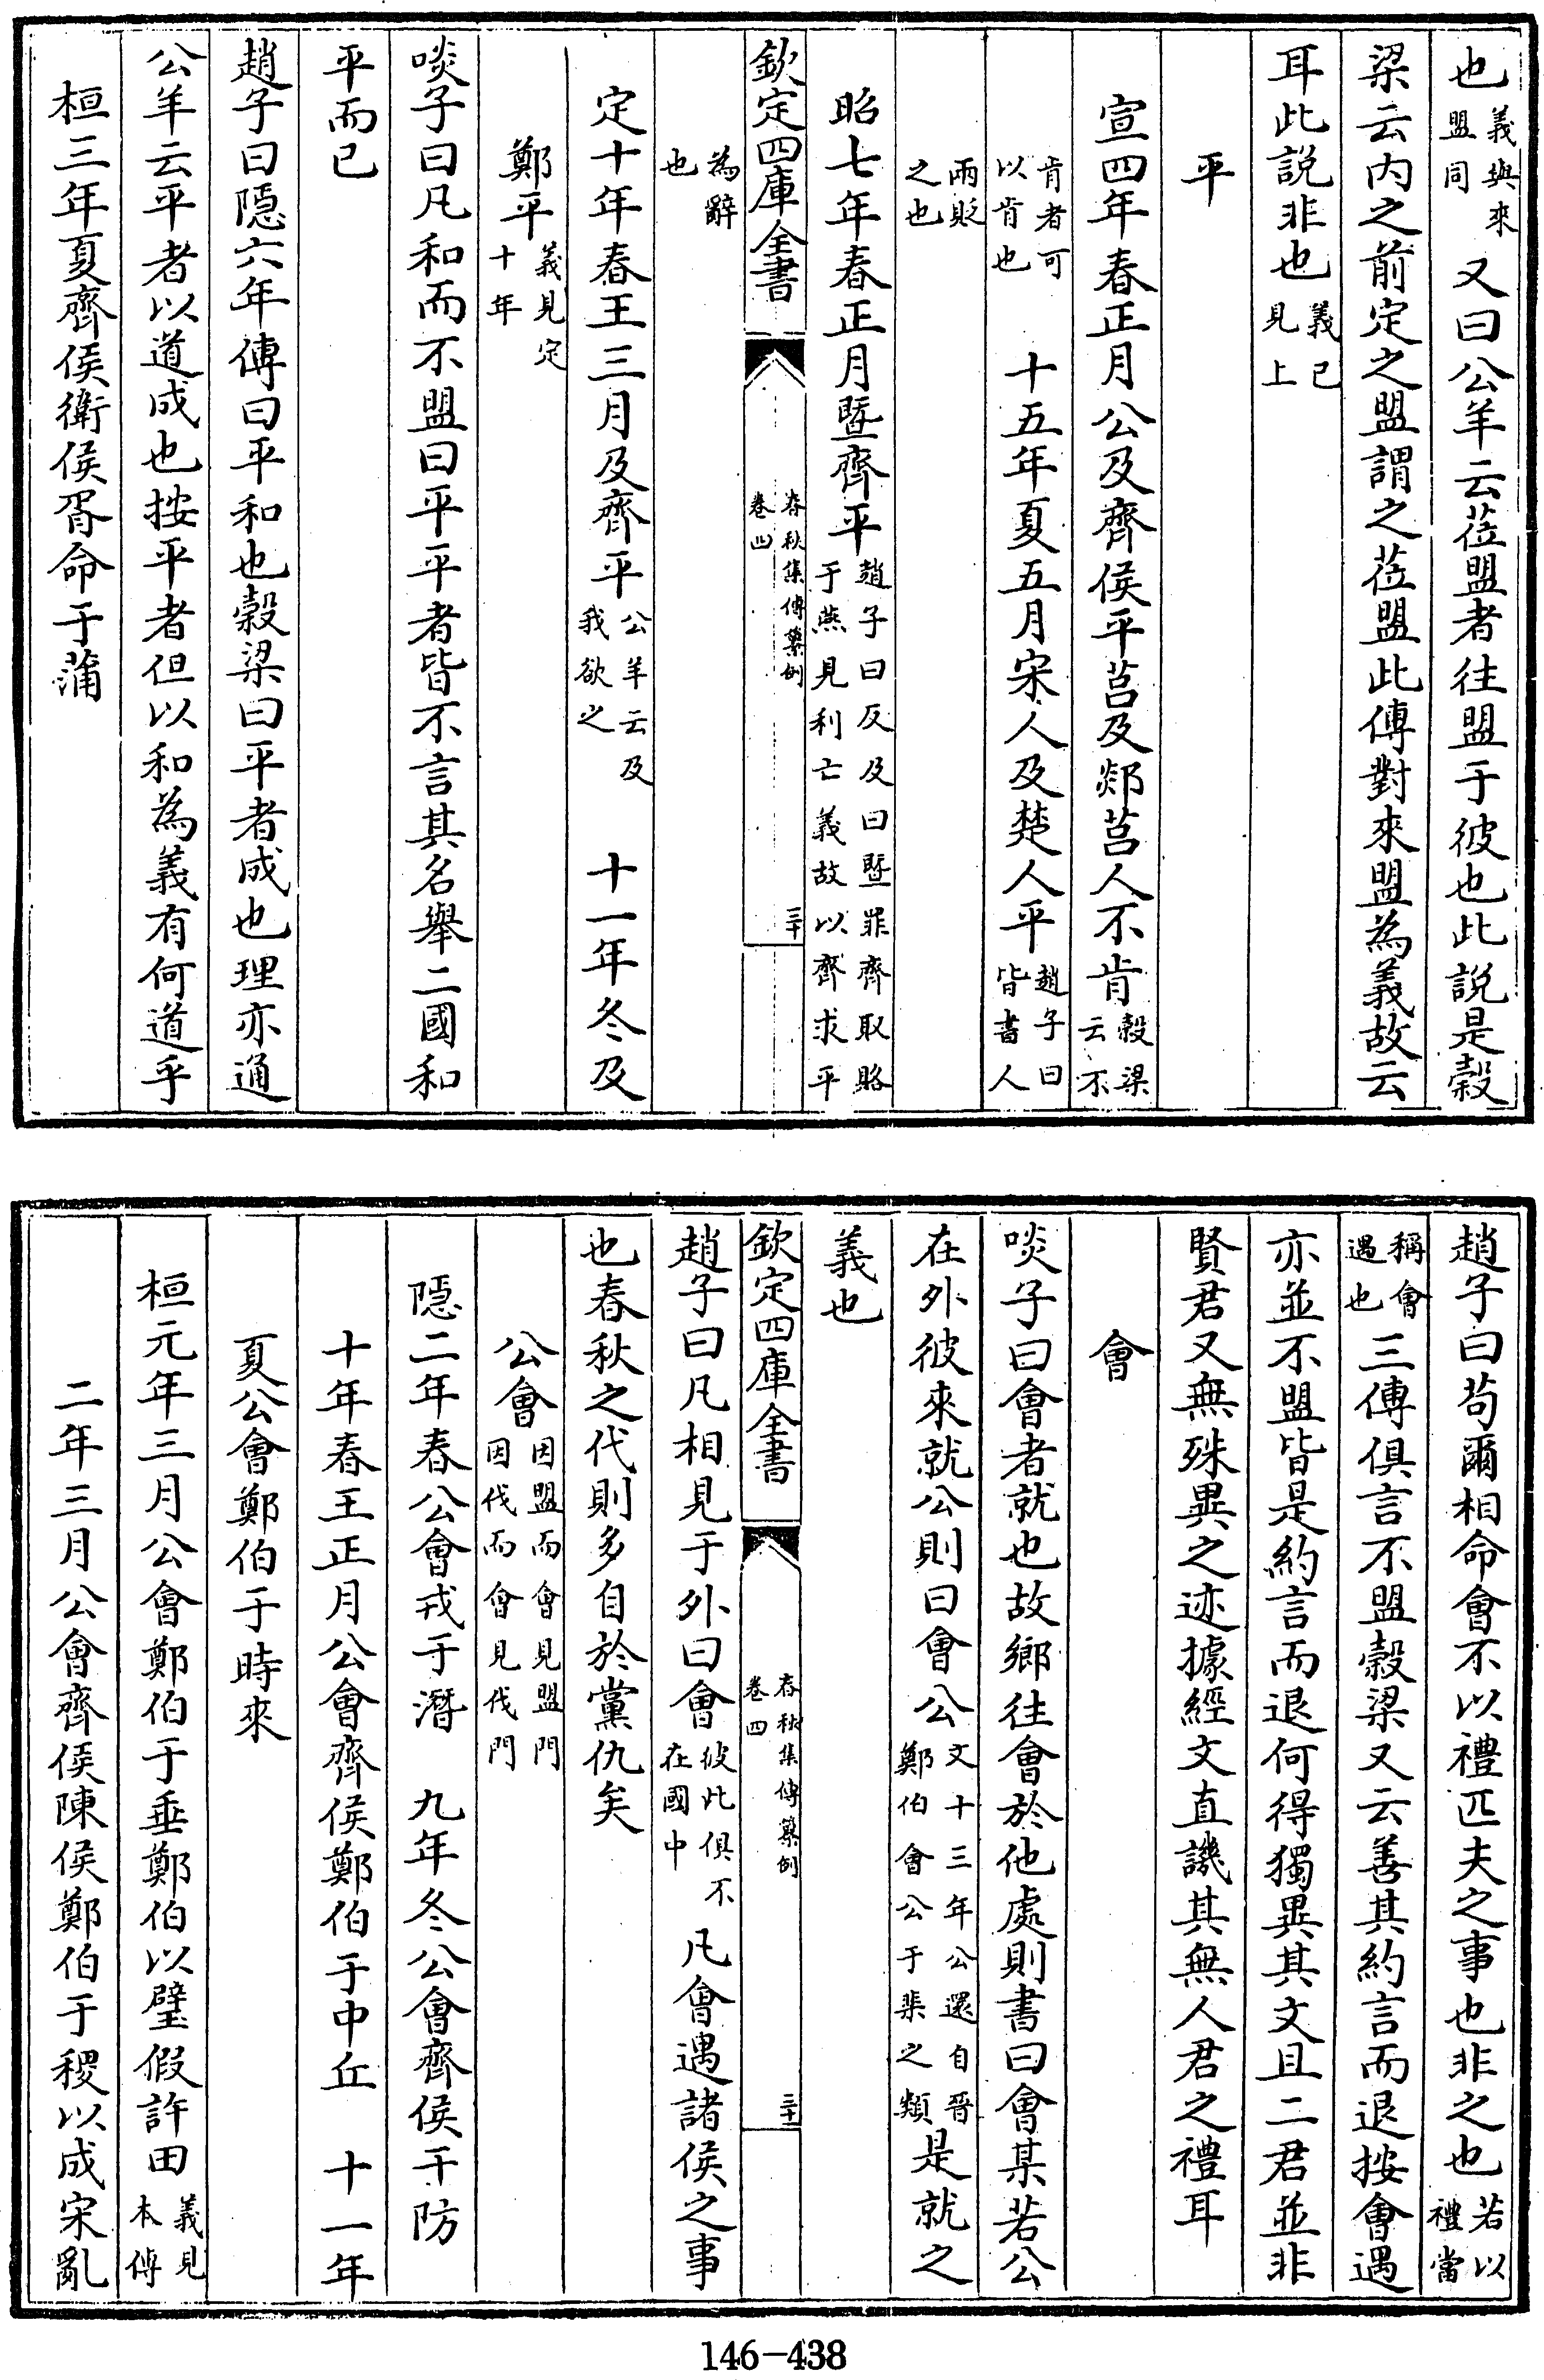 也義與來盟同又曰公羊云莅盟者往盟于彼也此說是榖
梁云内之前定之盟謂之莅盟此傳對來盟為義故云
耳此說非也義已見上
平
宣四年春正月公及齊侯平莒及郯莒人不肯榖梁云不
肯者可以肯也　十五年夏五月宋人及楚人平趙子曰皆書人
兩貶之也
昭七年春正月暨齊平趙子曰反及曰暨罪齊取賂于燕見利亡義故以齊求平
欽定四庫全書　春秋集傳纂例卷四　三十
為辭也
定十年春王三月及齊平公羊云及我欲之　十一年冬及
鄭平義見定十年
啖子曰凡和而不盟曰平平者皆不言其名舉二國和
平而已
趙子曰隱六年傳曰平和也榖梁曰平者成也理亦通
公羊云平者以道成也按平者但以和為義有何道乎
桓三年夏齊侯衛侯胥命于蒲
趙子曰苟爾相命會不以禮匹夫之事也非之也若以禮當
稱會遇也三傳俱言不盟榖梁又云善其約言而退按會遇
亦並不盟皆是約言而退何得獨異其文且二君並非
賢君又無殊異之迹據經文直譏其無人君之禮耳
會
啖子曰會者就也故鄉往會於他處則書曰會某若公
在外彼來就公則曰會公文十三年公還自晉鄭伯會公于棐之類是就之
義也
欽定四庫全書　春秋集傳纂例卷四　三十一
趙子曰凡相見于外曰會彼此俱不在國中凡會遇諸侯之事
也春秋之代則多自於黨仇矣
公會因盟而會見盟門因伐而會見伐門
隱二年春公會戎于潛　九年冬公會齊侯于防
十年春王正月公會齊侯鄭伯于中丘　十一年
夏公會鄭伯于時來
桓元年三月公會鄭伯于垂鄭伯以璧假許田義見本傳
二年三月公會齊侯陳侯鄭伯于稷以成宋亂
146-438